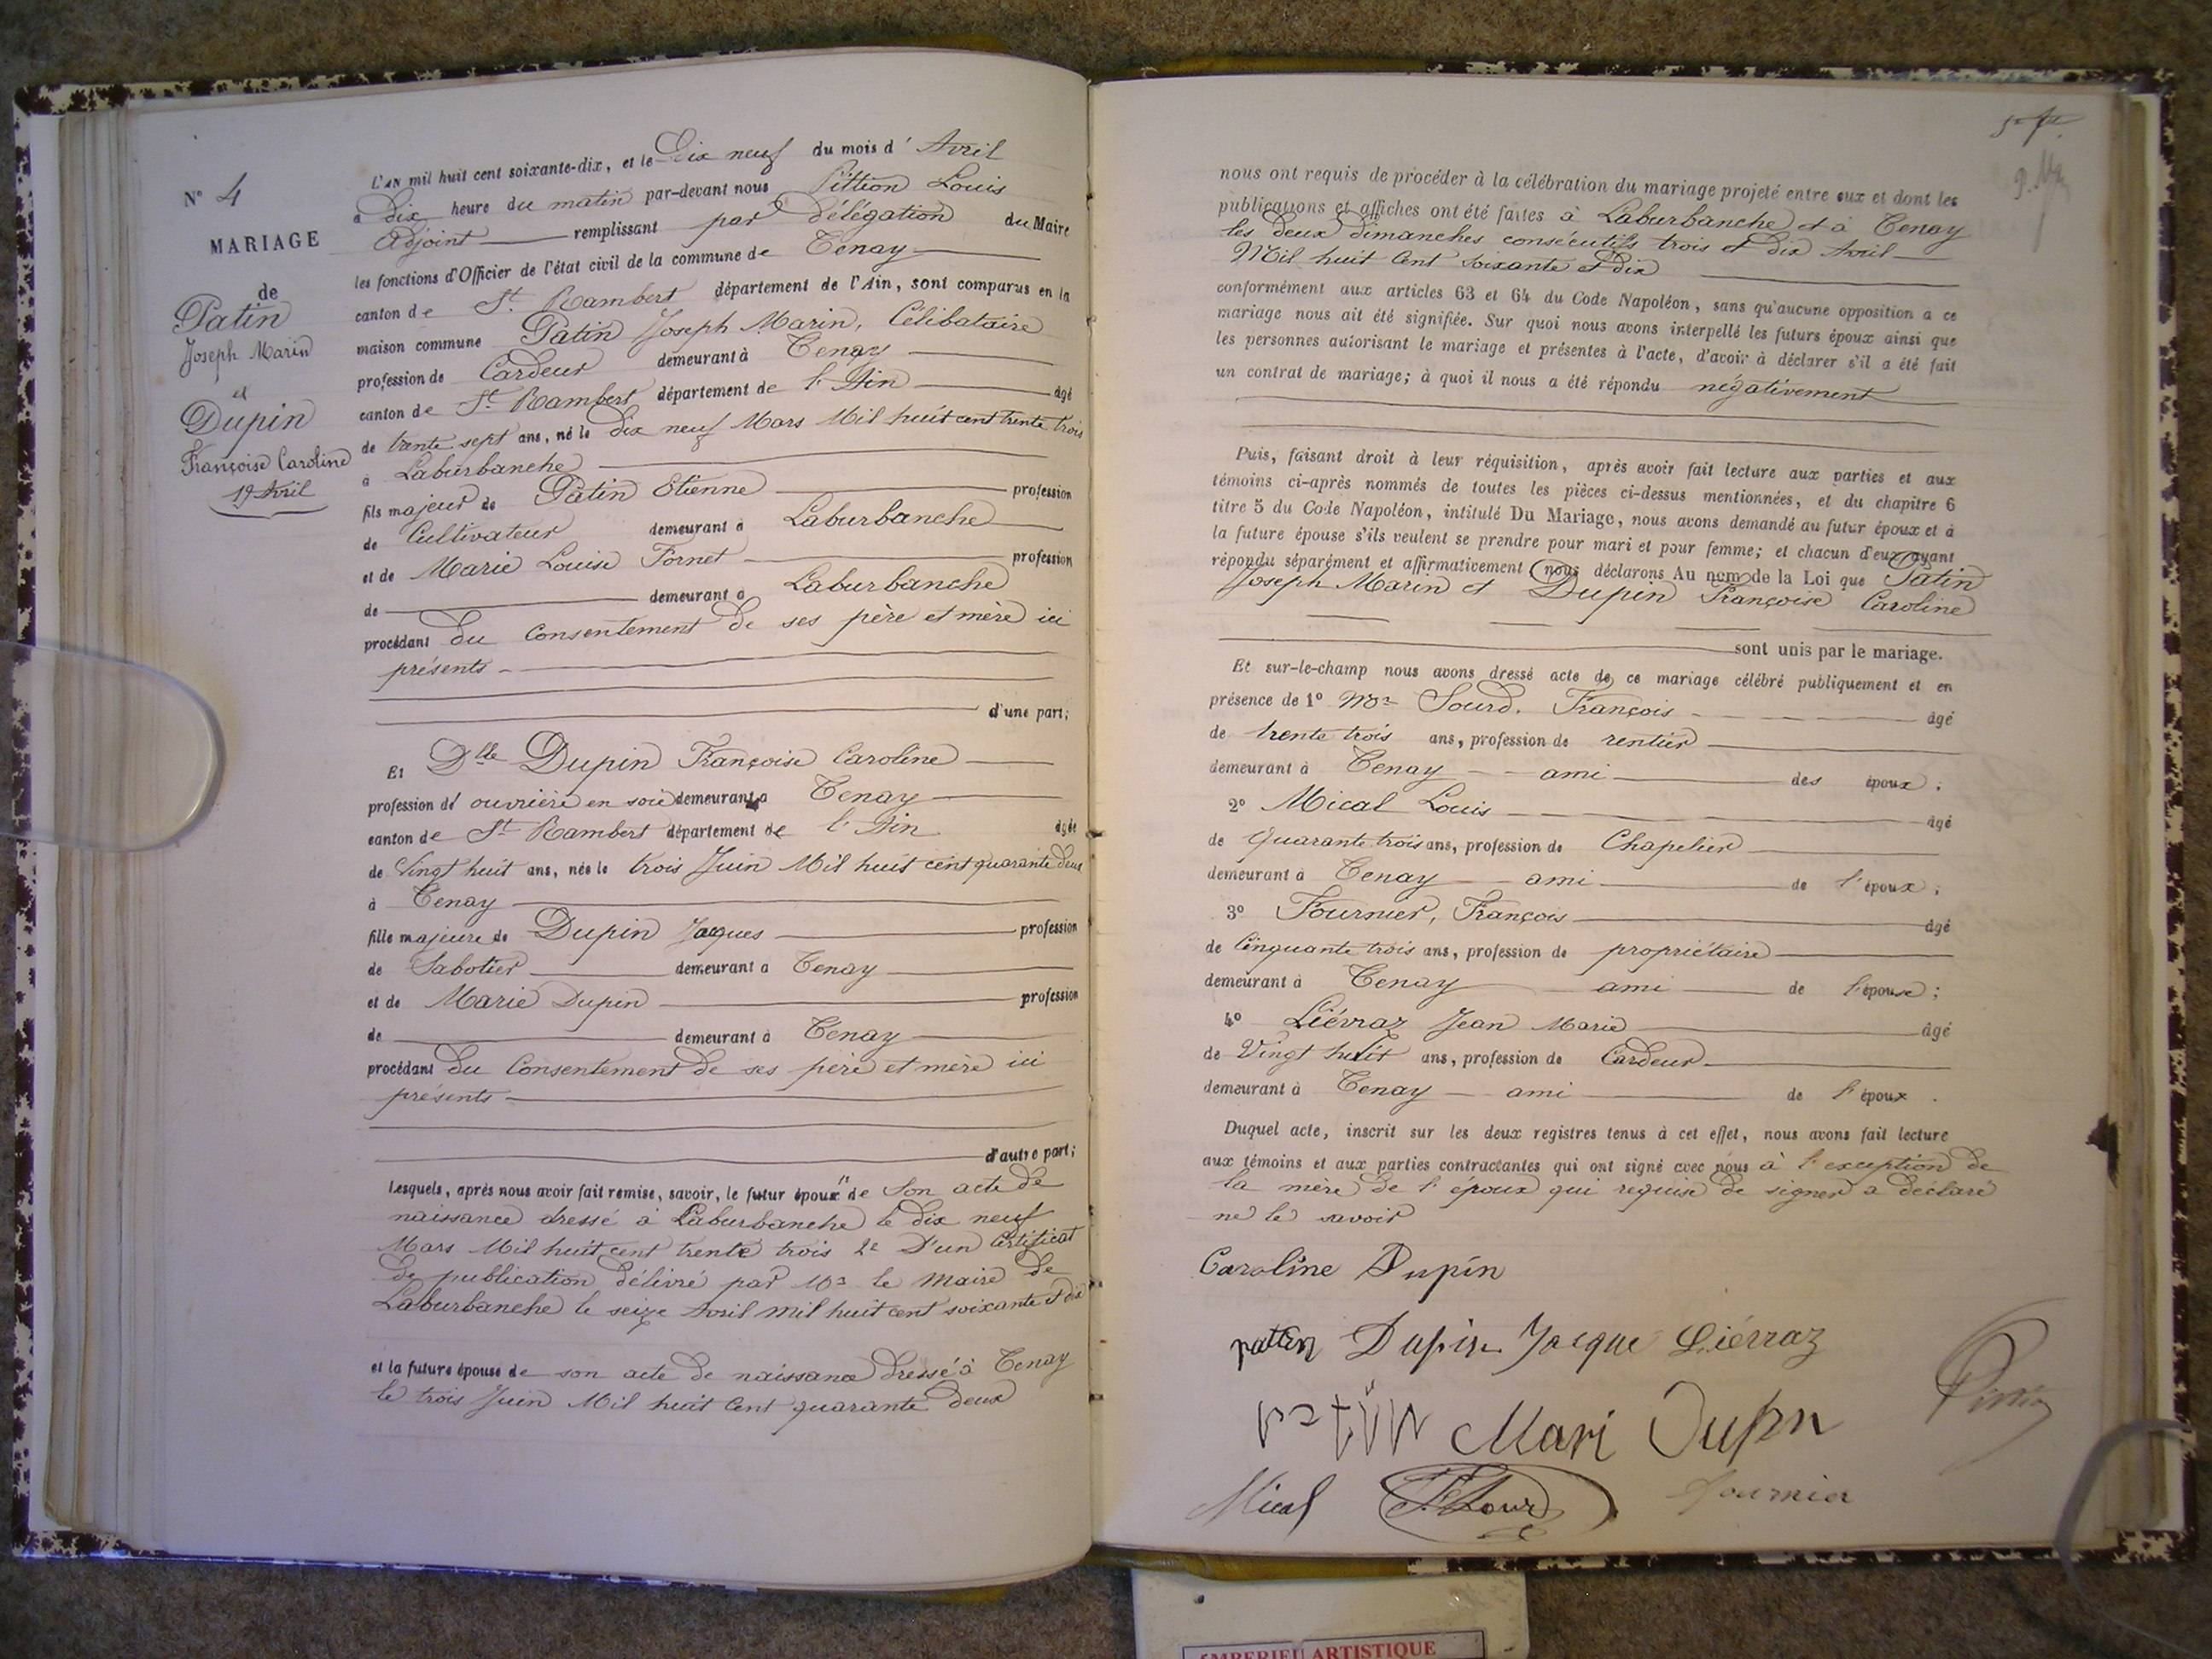 N° 4
MARIAGE
de
Patin
Joseph Marin
et
Dupin
Françoise Caroline
19 Avril
L'AN mil huit cent soixante-dix, et le Dix neuf du mois d' Avril
à dix heure du matin par-devant nous Pittion Louis
Adjoint remplissant par délégation du Maire
les fonctions d'Officier de l'état civil de la commune de Tenay
canton de St. Rambert département de l'Ain, sont comparus en la
maison commune Patin Joseph Marin, Célibataire
profession de Cardeur demeurant à Tenay
canton de St. Rambert département de l'Ain âgé
de trente sept ans, né le dix neuf Mars Mil huit cent trente trois
à Laburbanche
fils majeur de Patin Etienne profession
de Cultivateur demeurant à Laburbanche
et de Marie Louise Fornet profession
de demeurant à Laburbanche
procédant du consentement de ses père et mère ici
présents
d'une part;
Et Dlle Dupin Françoise Caroline
profession de ouvrière en soie demeurant a Tenay
canton de St. Rambert département de l'Ain âgée
de Vingt huit ans, née le trois Juin Mil huit cent quarante deux
à Tenay
fille majeure de Dupin Jaques profession
de Sabotier demeurant a Tenay
et de Marie Dupin profession
de demeurant à Tenay
procédant du Consentement de ses père et mère ici
présents
d'autre part;
Lesquels, après nous avoir fait remise, savoir, le futur époux de Son acte de
naissance dressé à Laburbanche le dix neuf
Mars Mil huit cent trente trois 2e D'un Certificat
de publication délivré par Mr le Maire de
Laburbanche le seize Avril mil huit cent soixante et dix
et la future épouse de son acte de naissance dressé à Tenay
le trois Juin Mil huit Cent quarante deux
nous ont requis de procéder à la célébration du mariage projeté entre eux et dont les
publications et affiches ont été faites à Laburbanche et à Tenay
les deux dimanches consécutifs trois et dix Avril
Mil huit Cent soixante et dix
conformément aux articles 63 et 64 du Code Napoléon, sans qu'aucune opposition a ce
mariage nous ait été signifiée. Sur quoi nous avons interpellé les futurs époux ainsi que
les personnes autorisant le mariage et présentes à l'acte, d'avoir à déclarer s'il a été fait
un contrat de mariage; à quoi il nous a été répondu négativement
Puis, faisant droit à leur réquisition, après avoir fait lecture aux parties et aux
témoins ci-après nommés de toutes les pièces ci-dessus mentionnées, et du chapitre 6
titre 5 du Code Napoléon, intitulé Du Mariage, nous avons demandé au futur époux et à
la future épouse s'ils veulent se prendre pour mari et pour femme; et chacun d'eux ayant
répondu séparément et affirmativement nous déclarons Au nom de la Loi que Patin
Joseph Marin et Dupin Françoise Caroline
sont unis par le mariage.
Et sur-le-champ nous avons dressé acte de ce mariage célébré publiquement et en
présence de 1° Mr Sourd, François âgé
de trente trois ans, profession de rentier
demeurant à Tenay ami des époux;
2° Mical Louis âgé
de quarante trois ans, profession de Chapelier
demeurant à Tenay ami de l'époux;
3° Fournier, François âgé
de Cinquante trois ans, profession de propriétaire
demeurant à Tenay ami de l'épouse;
4° Liévraz Jean Marie âgé
de Vingt huit ans, profession de Cardeur
demeurant à Tenay ami de l'époux.
Duquel acte, inscrit sur les deux registres tenus à cet effet, nous avons fait lecture
aux témoins et aux parties contractantes qui ont signé avec nous à l'exception de
la mère de l'époux qui requise de signer a déclaré
ne le savoir
Caroline Dupin
patin Dupin Jacque Liévraz
patin Mari Dupin
Mical Fournier
AMBERIEU ARTISTIQUE